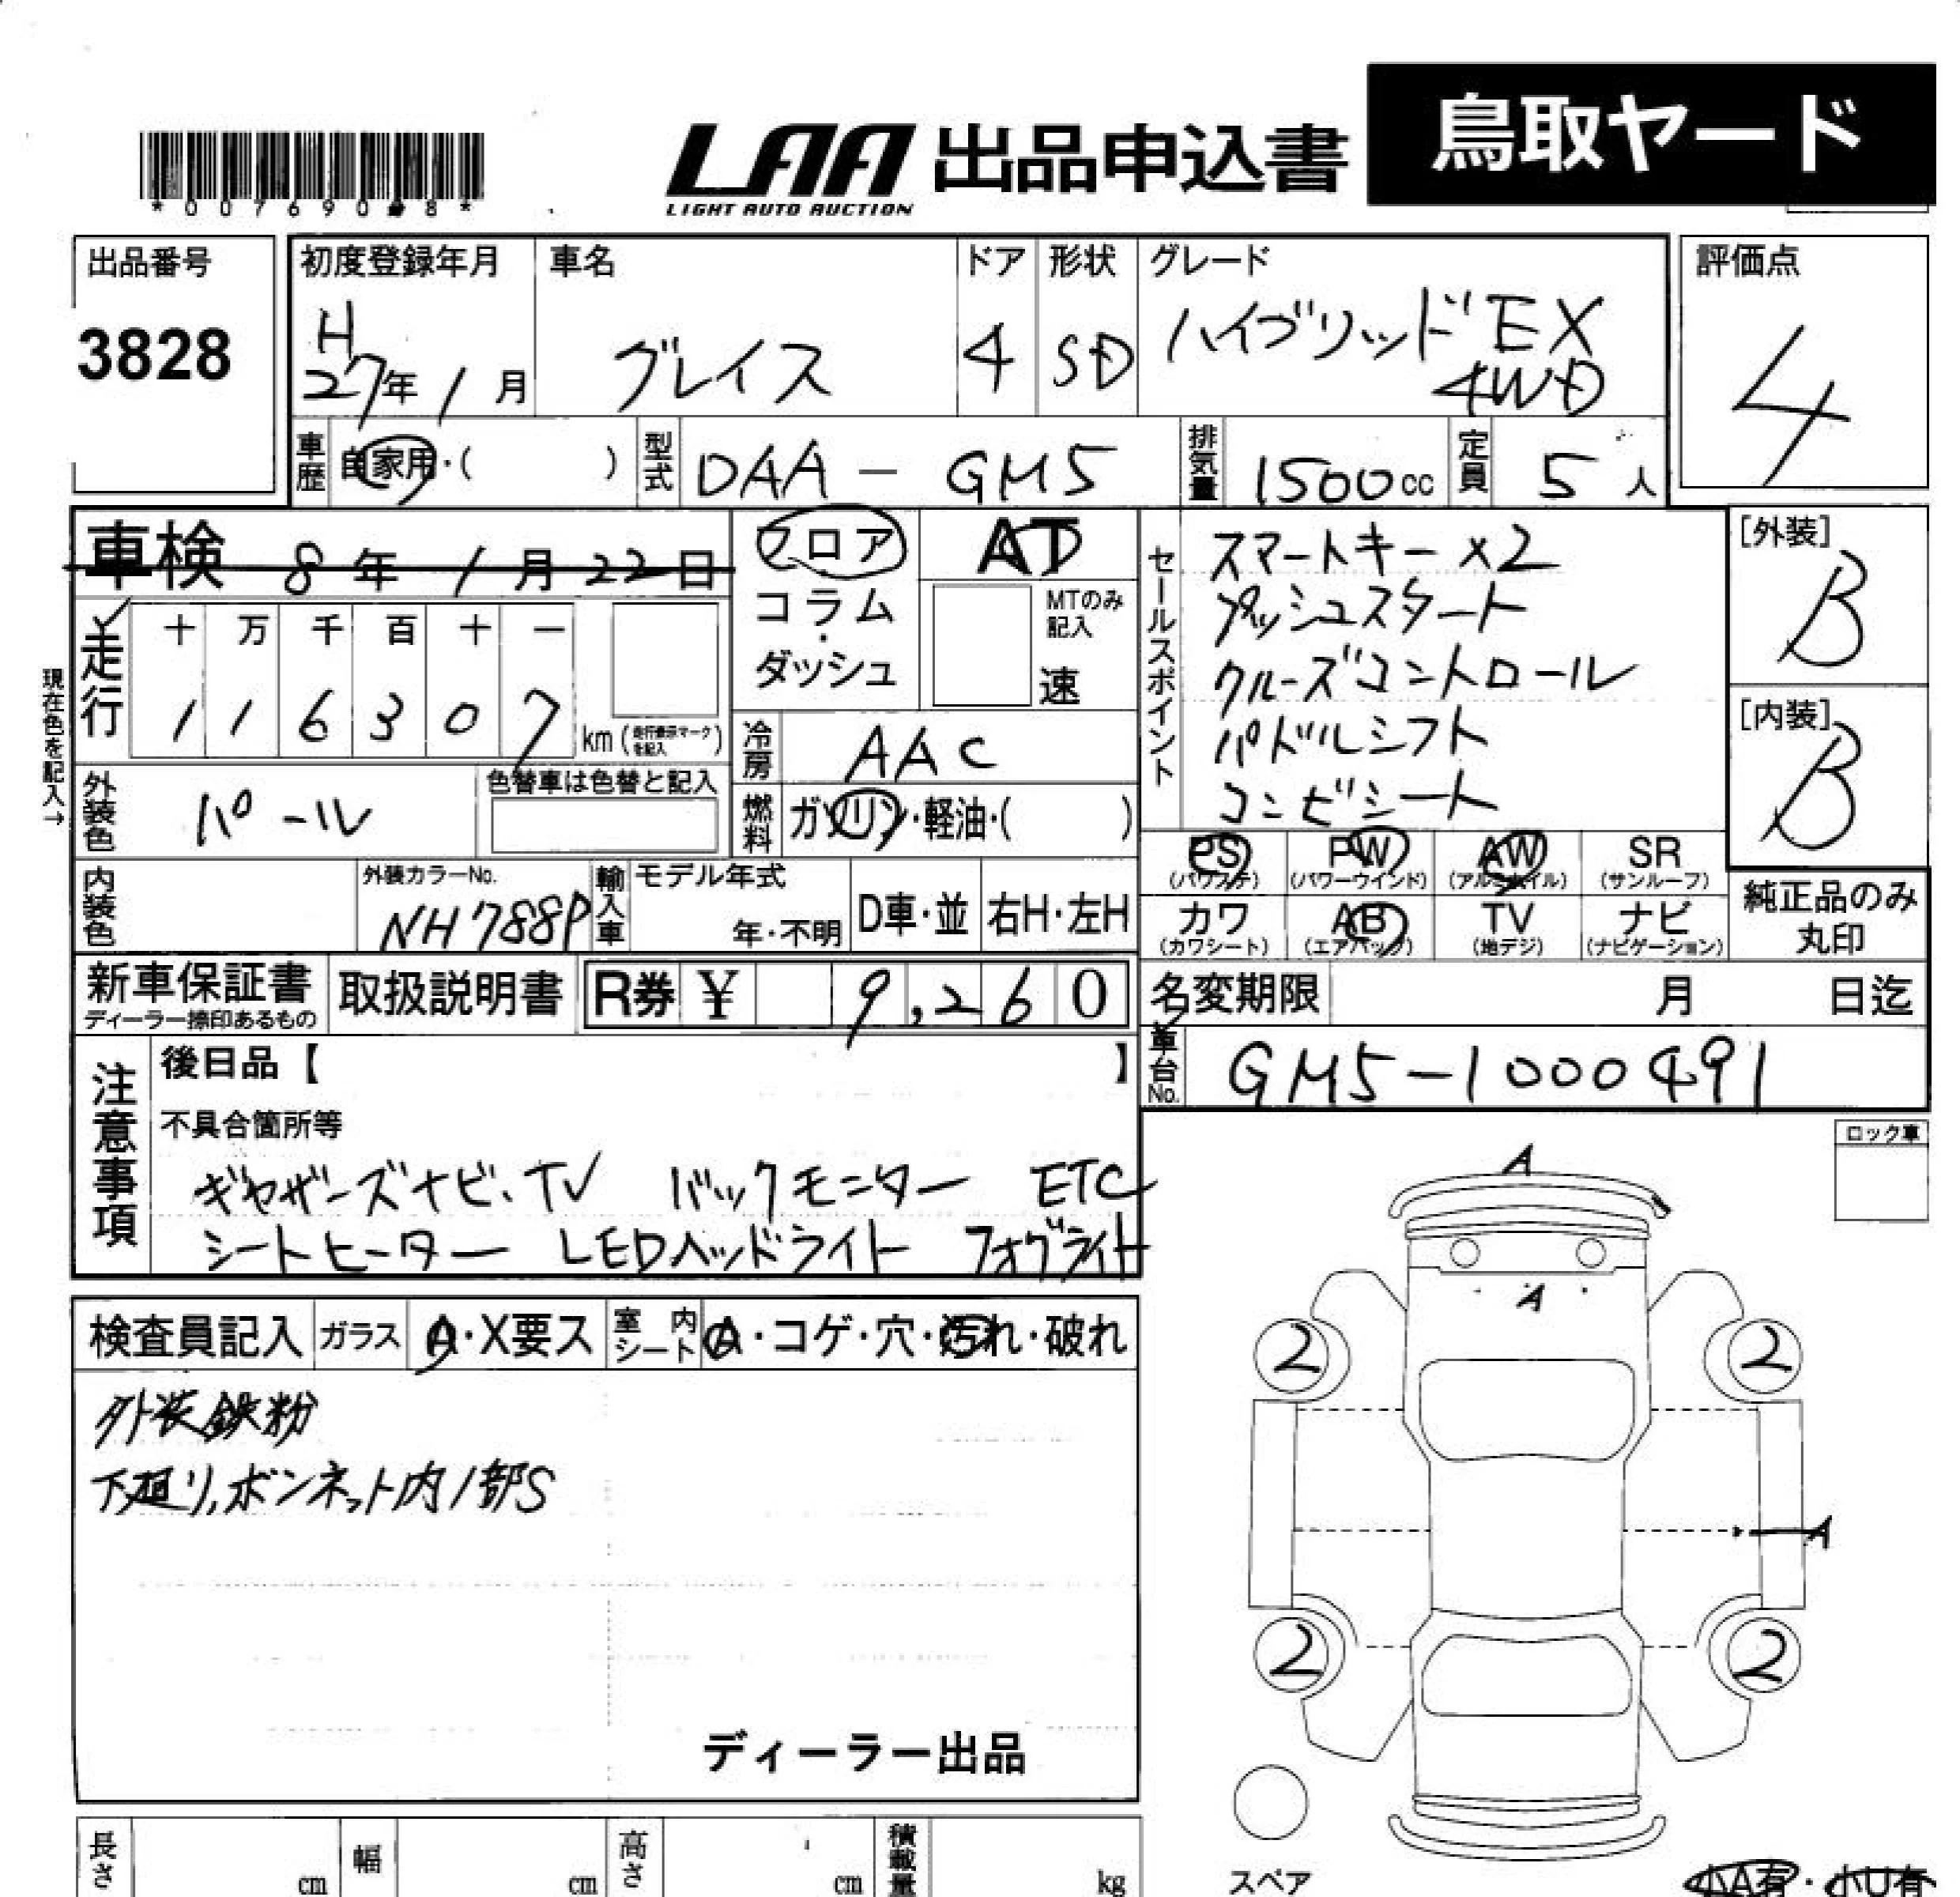 鳥取ヤード
LAA 出品申込書
LIGHT AUTO AUCTION
出品番号
3828
初度登録年月
H
27年 1月
車名
グレイス
ドア
4
形状
SD
グレード
ハイブリッドEX
4WD
評価点
4
車歴 自家用・( )
型式 DAA - GM5
排気量 1500cc
定員 5人
車検 8年 1月 22日
フロア
コラム
・
ダッシュ
AT
MTのみ
記入
速
セールスポイント
スマートキー x2
プッシュスタート
クルーズコントロール
パドルシフト
コンビシート
[外装]
B
[内装]
B
現在色を記入→
走行
十 万 千 百 十 一
1 1 6 3 0 7
km (走行表示マークを記入)
冷房 AAC
外装色 パール
色替車は色替と記入
燃料 ガソリン・軽油・( )
PS (パワステ)
PW (パワーウインド)
AW (アルミホイル)
SR (サンルーフ)
カワ (カワシート)
AB (エアバッグ)
TV (地デジ)
ナビ (ナビゲーション)
純正品のみ
丸印
内装色
外装カラーNo.
NH788P
輸入車
モデル年式
年・不明
D車・並
右H・左H
新車保証書
ディーラー捺印あるもの
取扱説明書
R券 ¥ 9,260
名変期限 月 日迄
車台No. GM5-1000491
注意事項
後日品【 】
不具合箇所等
ギャザーズナビ・TV バックモニター ETC
シートヒーター LEDヘッドライト フォグライト
ロック車
検査員記入 ガラス A・X要ス 室内シート A・コゲ・穴・汚れ・破れ
外装鉄粉
下廻り,ボンネット内1部S
ディーラー出品
A
A
2
2
A
2
2
スペア
小A有・小U有
長さ cm
幅 cm
高さ cm
積載量 kg